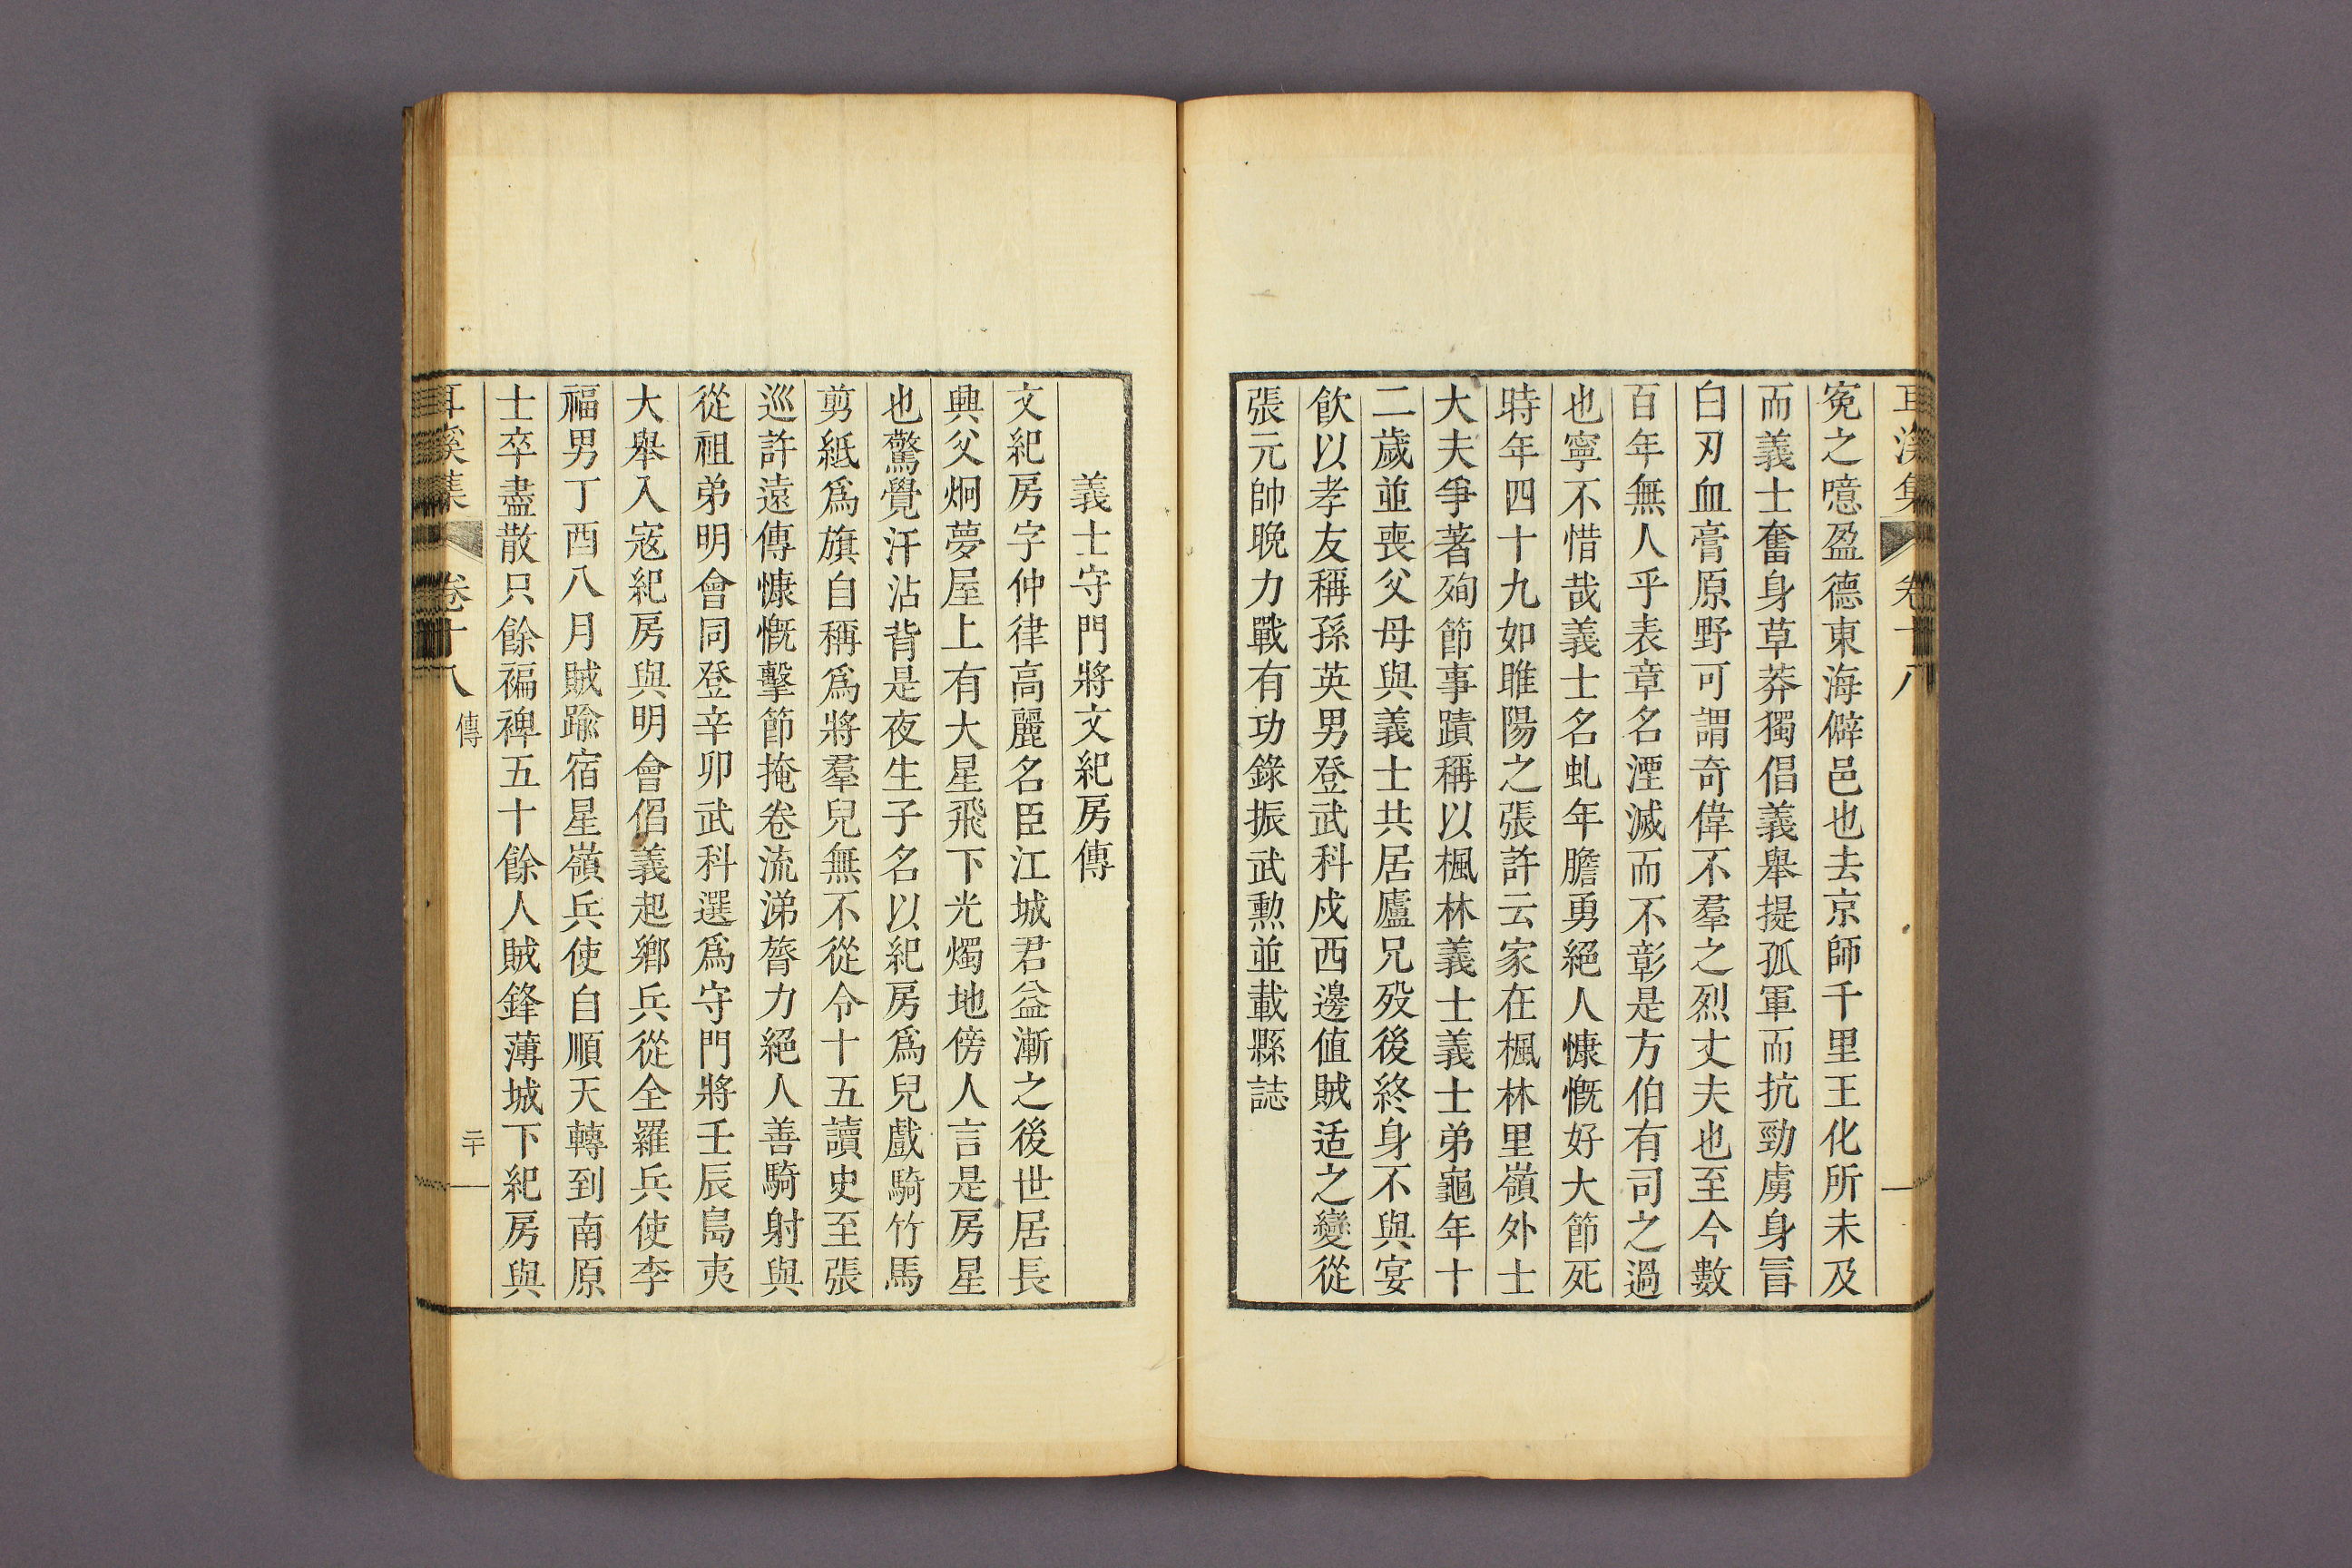 耳溪集 卷十八
寃之噫盈德東海僻邑也去京師千里王化所未及
而義士奮身草莽獨倡義舉提孤軍而抗勁虜身冒
白刃血膏原野可謂奇偉不羣之烈丈夫也至今數
百年無人乎表章名湮滅而不彰是方伯有司之過
也寧不惜哉義士名虬年膽勇絕人慷慨好大節死
時年四十九如睢陽之張許云家在楓林里嶺外士
大夫爭著殉節事蹟稱以楓林義士義士弟龜年十
二歲並喪父母與義士共居廬兄歿後終身不與宴
飮以孝友稱孫英男登武科戍西邊值賊适之變從
張元帥晩力戰有功錄振武勲並載縣誌
義士守門將文紀房傳
文紀房字仲律高麗名臣江城君益漸之後世居長
興父炯夢屋上有大星飛下光燭地傍人言是房星
也驚覺汗沾背是夜生子名以紀房爲兒戲騎竹馬
剪紙爲旗自稱爲將羣兒無不從令十五讀史至張
巡許遠傳慷慨擊節掩卷流涕膂力絕人善騎射與
從祖弟明會同登辛卯武科選爲守門將壬辰島夷
大舉入寇紀房與明會倡義起鄉兵從全羅兵使李
福男丁酉八月賊踰宿星嶺兵使自順天轉到南原
士卒盡散只餘褊裨五十餘人賊鋒薄城下紀房與
耳溪集 卷十八 傳 二十